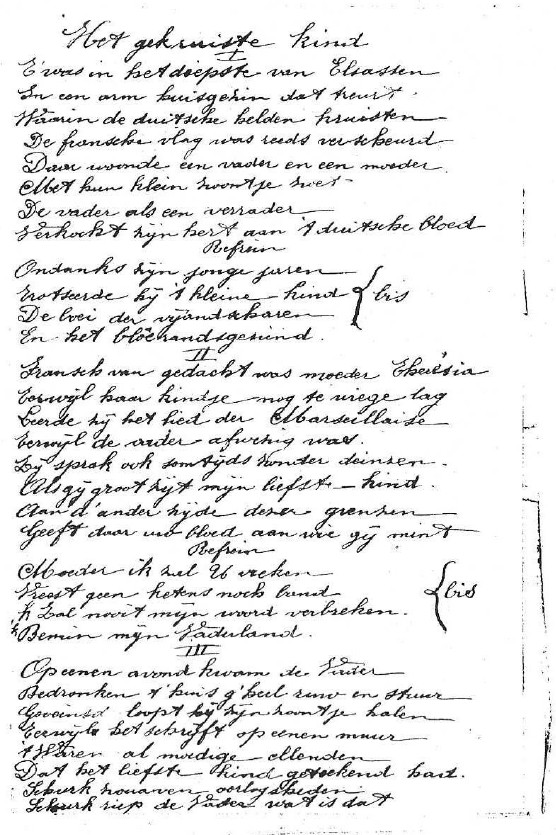 Het gekruiste kind
I
E'was in het diepste van Elsassen
In een arm huisgezin dat treurt
Waarin de duitsche helden kruisten
De fransche vlag was reeds verscheurd
Daar woonde een vader en een moeder
Met hun klein zoontje zoet
De vader als een verrader
Verkocht zijn hert aan 't duitsche bloed
Refrein
Ondanks zijn jonge jaren
Trotseerde hij 't kleine kind bis
De loei der vijandscharen
En het
II
Fransch van gedacht was moeder Theresia
Terwijl haar kindje nog te wiege lag
Leerde zij het lied der Marseillaise
Terwijl de vader afwezig was.
Zij sprak ook somtijds zonder deinzen.
Als gij groot zijt mijn liefste kind.
Aan d'ander zijde dezer grenzen
Geeft daar uw bloed aan wie gij mint
Refrein
Moeder ik zal U wreken
Vreest geen ketens noch band bis
'k Zal nooit mijn woord verbreken.
'k Bemin mijn Vaderland.
III
Op eenen avond kwam de Vader
Bedronken t'huis g'heel ruw en stuur
Geveinsd loopt hij zijn zoontje halen
Terwijl het schrijft op eenen muur
't Waren al moedige ellenden
Dat het liefste kind geteekend had.
Schurk zouaven oorlogsbeden
Schurk riep de Vader wat is dat